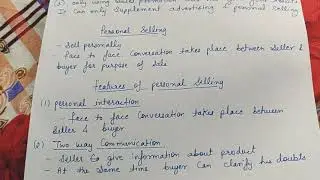 only using sales promotion results
It can only supplement advertising & personal selling
Personal Selling
- Sell personally
- face to face Conversation takes place between Seller &
buyer for purpose of sale
Features of personal Selling
(1) personal interaction
- face to face Conversation takes place between
Seller & buyer
(2) Two way Communication
- Seller to give information about product
- At the same time buyer can clarify his doubts